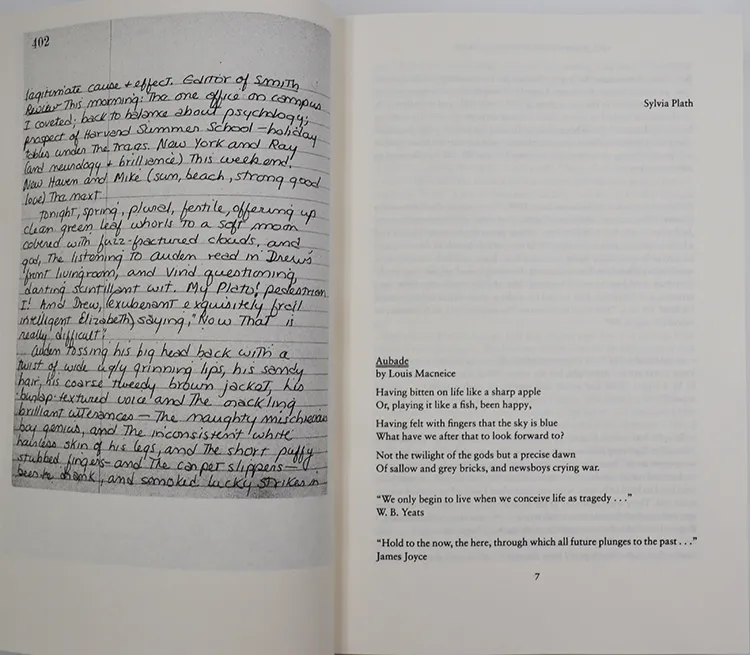 402
legitimate cause + effect. Editor of Smith
Review This morning: The one office on campus
I coveted; back to balance about psychology;
prospect of Harvard Summer School - holiday
tables under The Trees. New York and Ray
(and neurology + brilliance) This weekend!
New Haven and Mike (sun, beach, strong good
love) The next.
Tonight, spring, plural, fertile, offering up
clean green leaf whorls To a soft moon
covered with fuzz-fractured clouds, and
god, The listening To Auden read in Drew's
front livingroom, and vivid questioning,
darting scintillant wit. My Plato! pedestrian
I! And Drew, (exuberant exquisitely frail
intelligent Elizabeth) saying, "Now That is
really difficult".
Auden Tossing his big head back with a
twist of wide ugly grinning lips, his sandy
hair, his coarse tweedy brown jacket, his
burlap-textured voice and The crackling
brilliant utterances — The naughty mischievous
boy genius, and The inconsistent white
hairless skin of his legs, and The short puffy
stubbed fingers - and The carpet slippers -
beer he drank, and smoked Lucky Strikes in
Sylvia Plath
Aubade
by Louis Macneice
Having bitten on life like a sharp apple
Or, playing it like a fish, been happy,
Having felt with fingers that the sky is blue
What have we after that to look forward to?
Not the twilight of the gods but a precise dawn
Of sallow and grey bricks, and newsboys crying war.
“We only begin to live when we conceive life as tragedy . . .”
W. B. Yeats
“Hold to the now, the here, through which all future plunges to the past . . .”
James Joyce
7